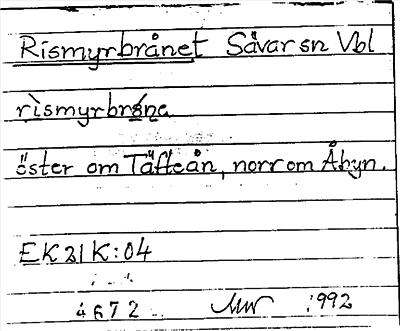 Rismyrbrånet Såvar sn Vbl
rìsmyrbrǿna
öster om Täfteån, norr om Åbyn.
EK 21 K:04
4672 MW 1992